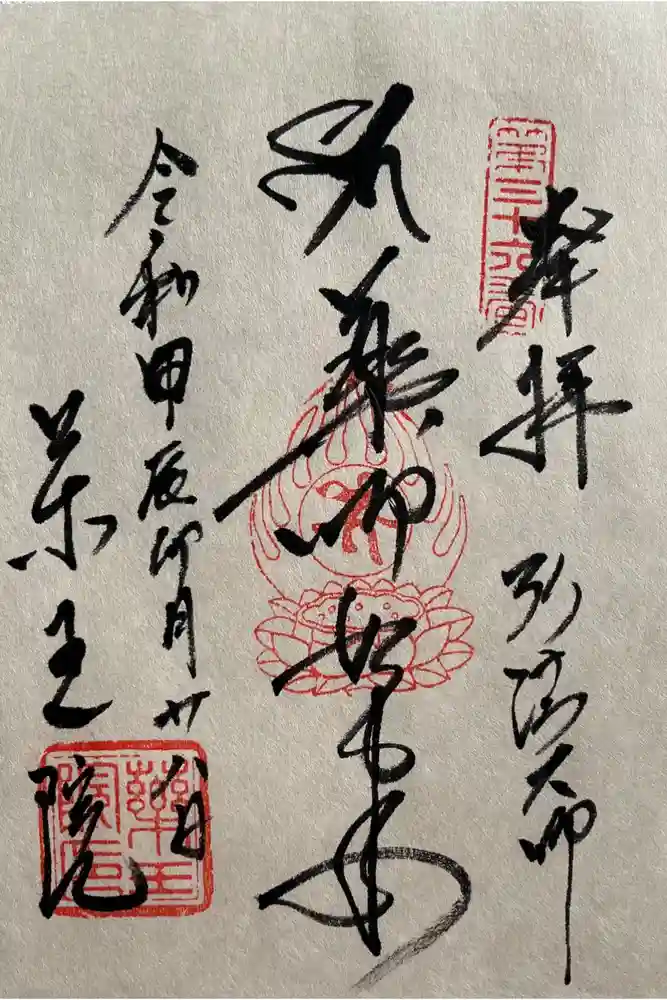 第三十六番
奉拝
弘法大師
薬師如来
令和甲辰卯月廿八日
薬王院
薬王院印